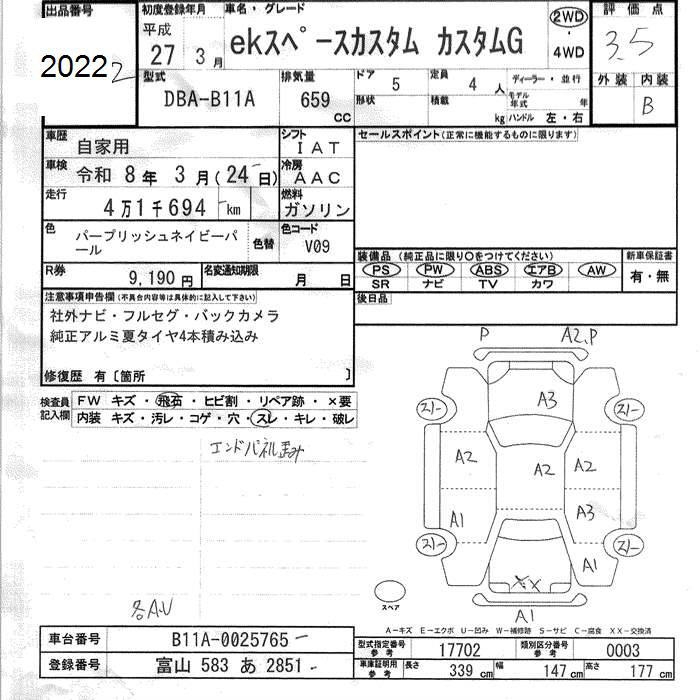 出品番号
20222
初度登録年月
平成
27 3 月
車名・グレード
ekスペースカスタム カスタムG
2WD
・
4WD
評価点
3.5
型式
DBA-B11A
排気量
659
CC
ドア
5
定員
4 人
ディーラー・並行
形状
積載
kg
モデル年式 年
ハンドル 左・右
外装 内装
B
車歴
自家用
シフト
IAT
車検
令和 8 年 3 月 (24 日)
冷房
AAC
走行
4万1千694 km
燃料
ガソリン
色
パープリッシュネイビーパール
色替
色コード
V09
R券
9,190 円
名変通知期限
月 日
セールスポイント(正常に機能するものに限ります)
装備品 (純正品に限り○をつけてください)
PS PW ABS エアB AW
SR ナビ TV カワ
新車保証書
有・無
後日品
注意事項申告欄 (不具合内容等は具体的に記入して下さい)
社外ナビ・フルセグ・バックカメラ
純正アルミ夏タイヤ4本積み込み
修復歴 有〔箇所 〕
検査員記入欄
FW キズ・飛石・ヒビ割・リペア跡・×要
内装 キズ・汚レ・コゲ・穴・スレ・キレ・破レ
エンドパネル歪み
各A.U
P A2.P
A3
スリー スリー
A2 A2 A2
A1 A3
スリー スリー
A1
××
A1
スペア
A-キズ E-エクボ U-凹み W-補修跡 S-サビ C-腐食 XX-交換済
車台番号
B11A-0025765
登録番号
富山 583 あ 2851
型式指定番号
参考
17702
類別区分番号
参考
0003
車庫証明用
参考
長さ 339 cm 幅 147 cm 高さ 177 cm